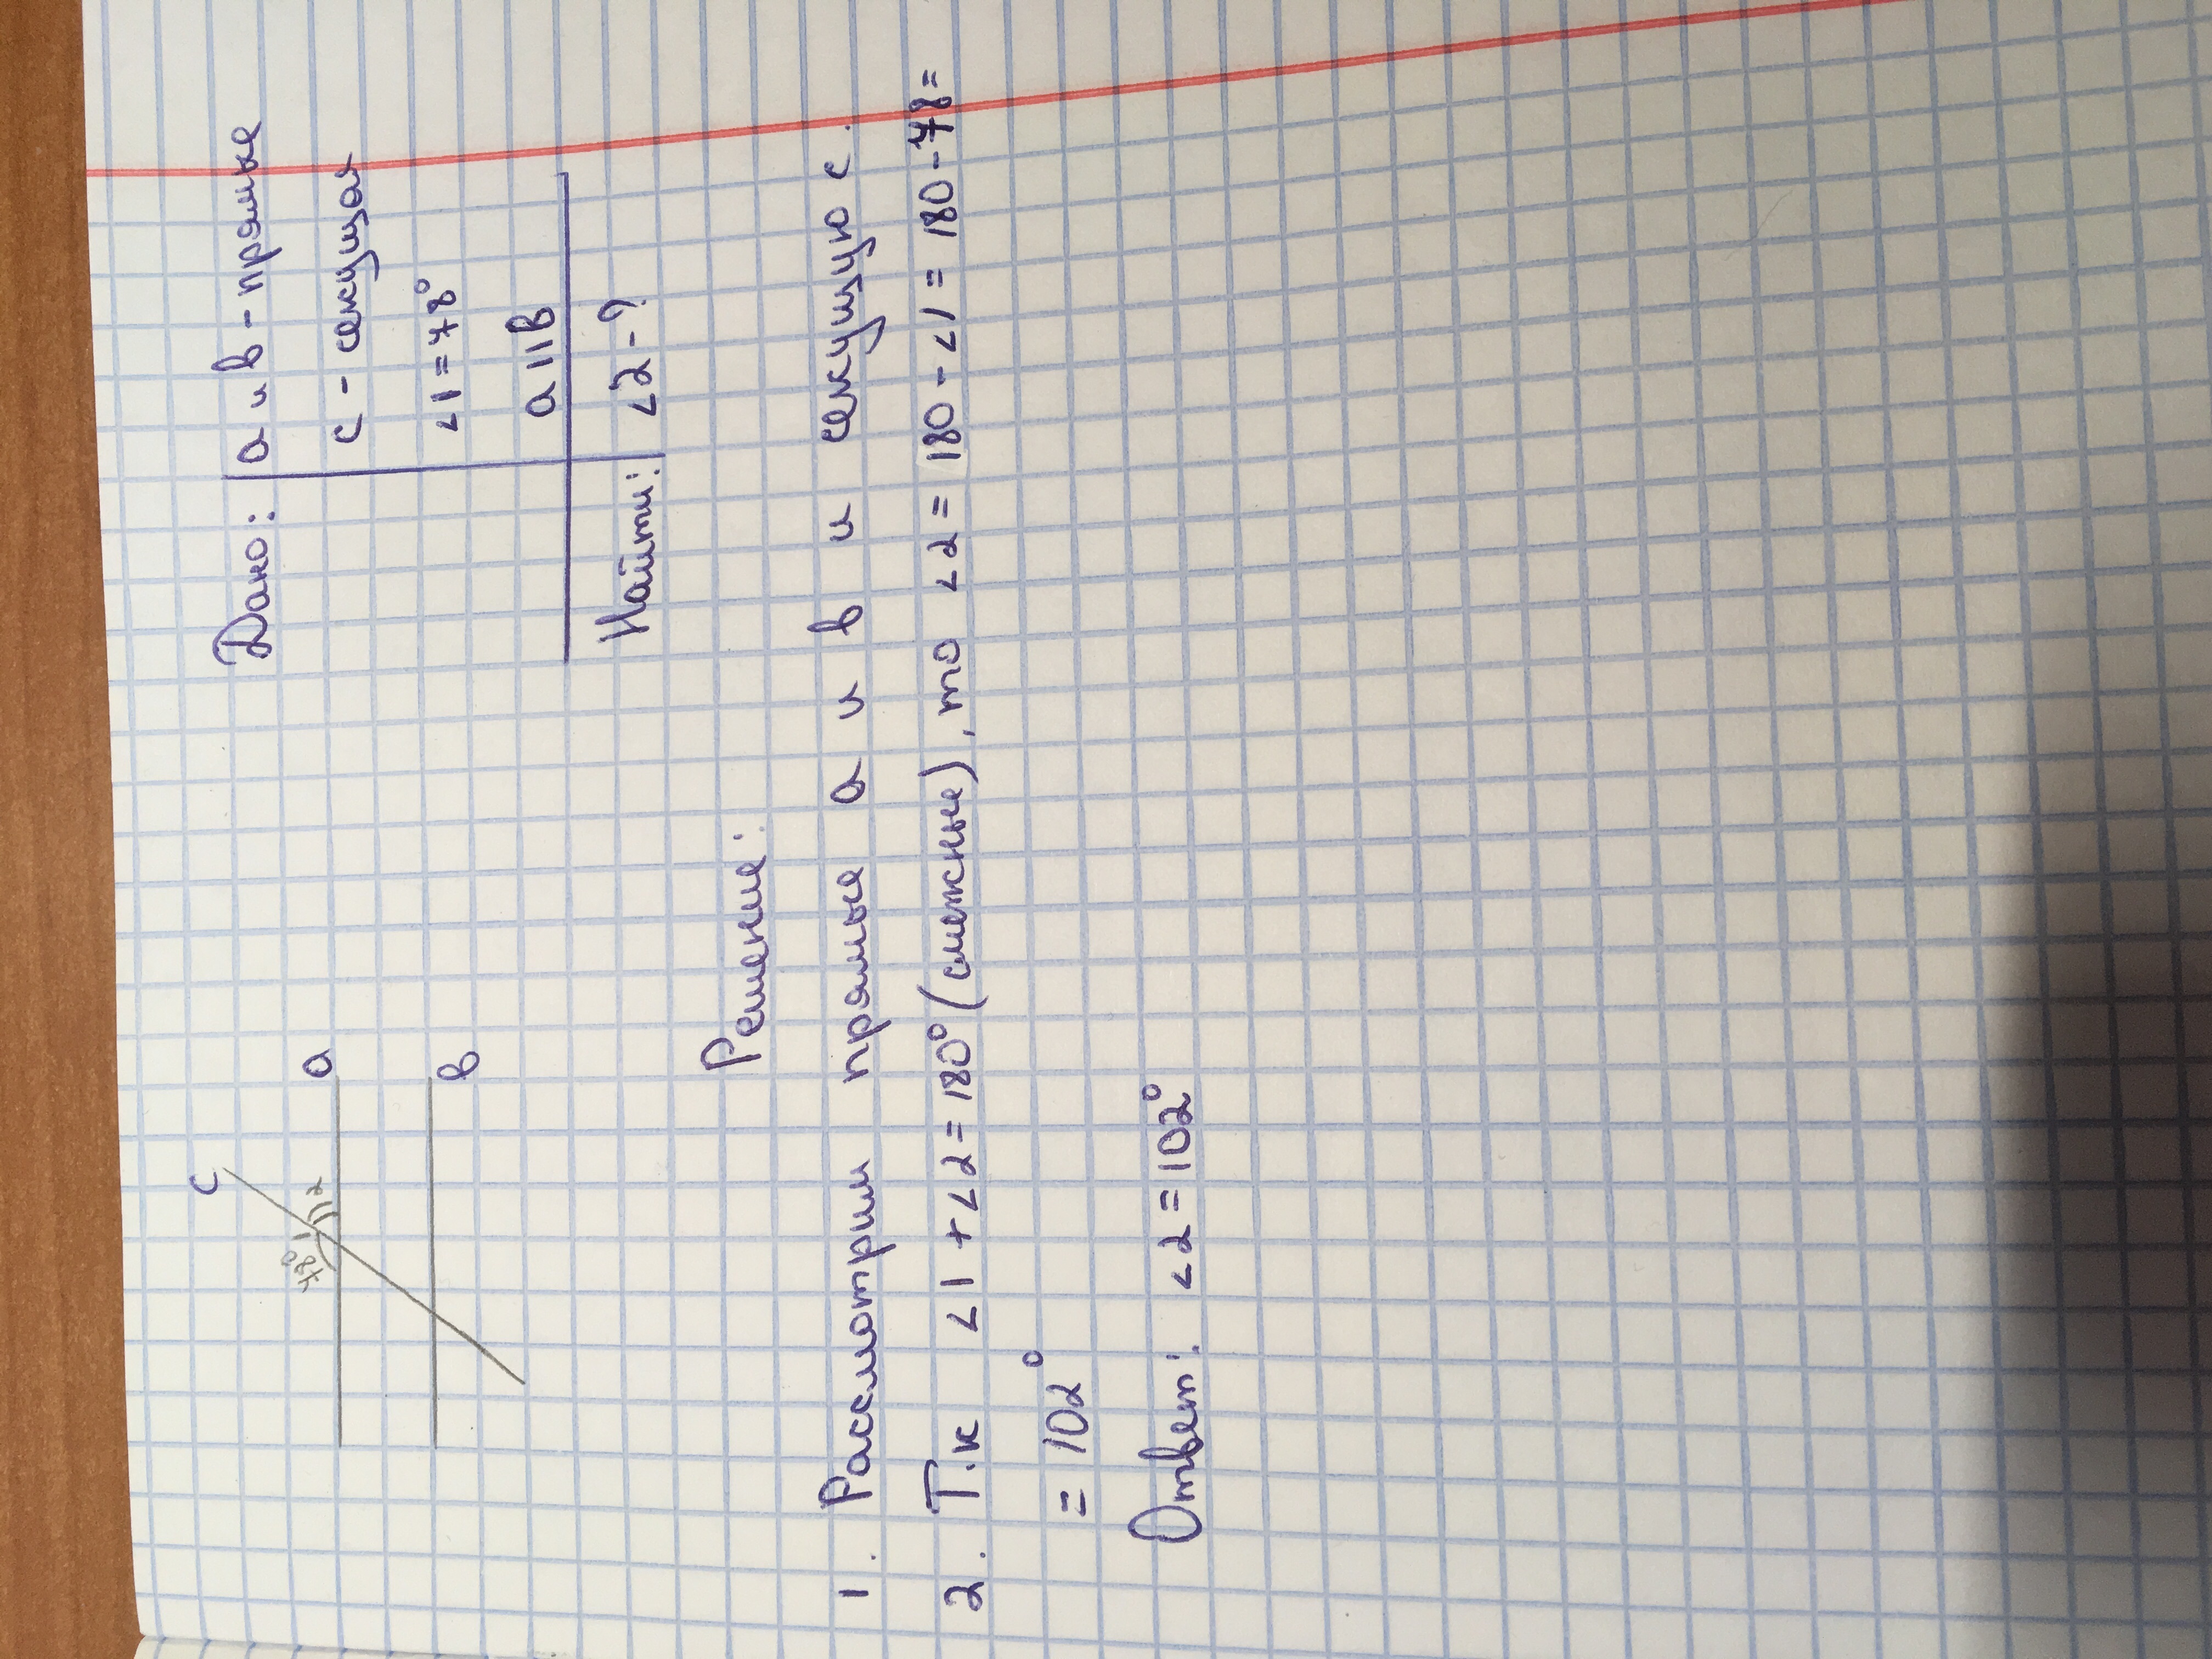 с
78° 2
а
в
Дано: а и в - прямые
с - секущая
∠1 = 78°
а || в
Найти: ∠2 - ?
Решение:
1. Рассмотрим прямые а и в и секущую с.
2. Т.к ∠1 + ∠2 = 180° (смежные), то ∠2 = 180 - ∠1 = 180 - 78 =
= 102°
Ответ: ∠2 = 102°